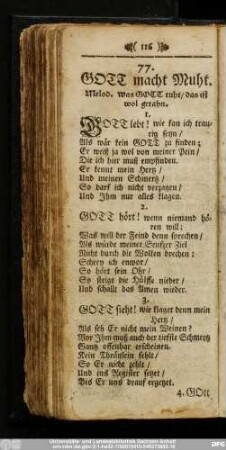 116
77.
GOTT macht Muht.
Melod. Was GOTT tuht/ das ist
wol getahn.
1.
GOTT lebt! wie kan ich trau-
rig seyn/
Als wär kein GOTT zu finden;
Er weiß ja wol von meiner Pein/
Die ich hier muß empfinden.
Er kennt mein Hertz/
Und meinen Schmertz/
So darf ich nicht verzagen/
Und Ihm nur alles klagen.
2.
GOTT hört! wenn niemand hö-
ren will;
Was will der Feind denn sprechen/
Als würde meiner Seufzer Ziel
Nicht durch die Wolken brechen:
Schrey ich empor/
So hört sein Ohr/
So steigt die Hülffe nieder/
Und schallt das Amen wieder.
3.
GOTT sieht! wie klaget denn mein
Hertz/
Als seh Er nicht mein Weinen?
Vor Ihm muß auch der tieffste Schmertz
Gantz offenbar erscheinen.
Kein Thränlein fehlt/
So Er nicht zehlt/
Und ins Register setzet/
Bis Er uns drauf ergetzet.
4. GOtt
Universitäts- und Landesbibliothek Sachsen-Anhalt